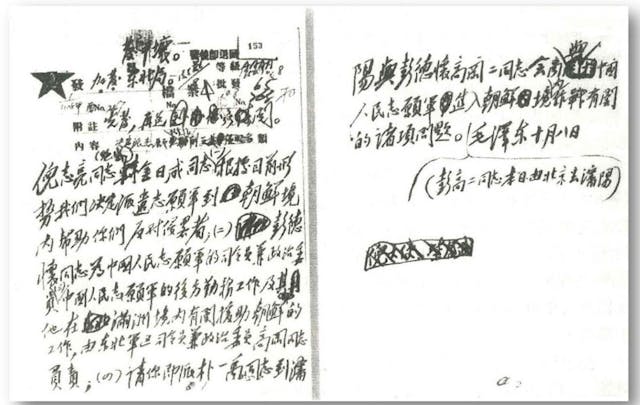 153
發
等級
附註
内容
倪志亮同志轉金日成同志根據目前形
勢我們決定派遣志願軍到朝鮮境
內幫助你們反對侵略者;(二)彭德
懷同志為中國人民志願軍的司令員兼政治委
員;中國人民志願軍的後方勤務工作及其
他在滿洲境內有關援助朝鮮的
工作,由東北軍區司令員兼政治委員高岡同志
負責;(四)請你即派朴一禹同志到瀋
陽與彭德懷高岡二同志會商與中國
人民志願軍進入朝鮮境作戰有關
的諸項問題。毛澤東十月八日
(彭高二同志本日由北京去瀋陽)